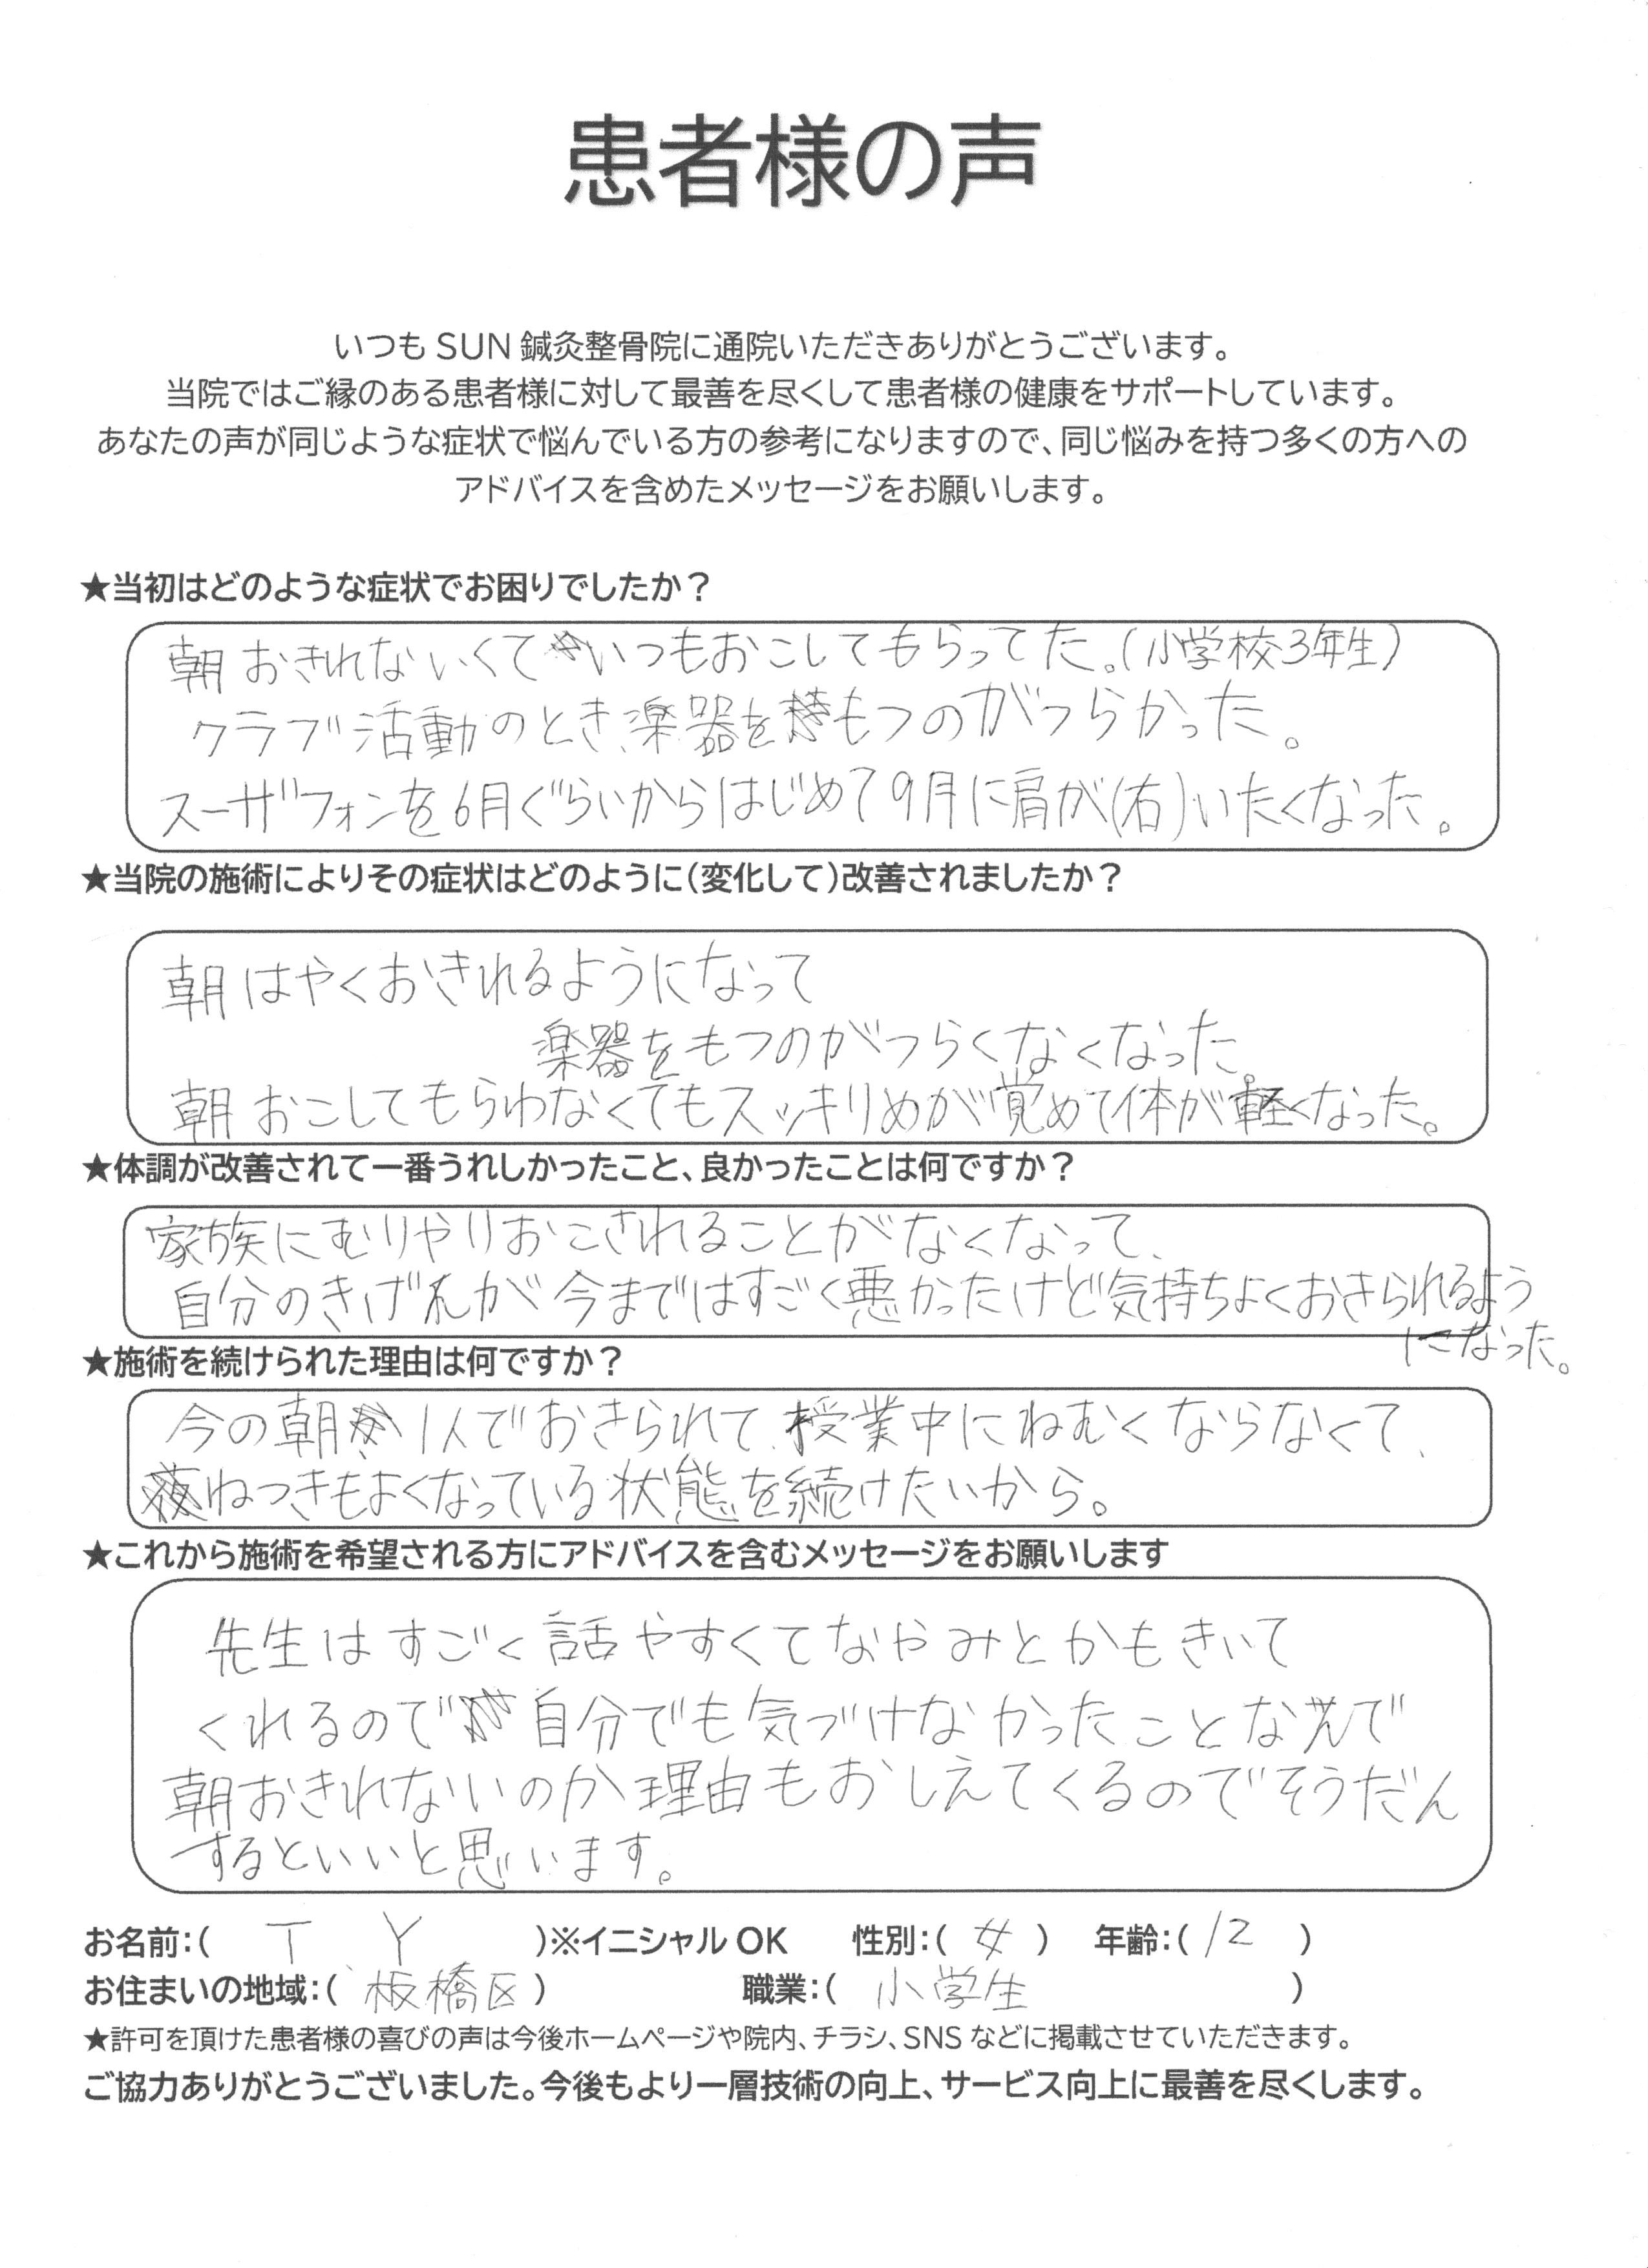 患者様の声
いつも SUN 鍼灸整骨院に通院いただきありがとうございます。
当院ではご縁のある患者様に対して最善を尽くして患者様の健康をサポートしています。
あなたの声が同じような症状で悩んでいる方の参考になりますので、同じ悩みを持つ多くの方への
アドバイスを含めたメッセージをお願いします。
★当初はどのような症状でお困りでしたか？
朝おきれないくていつもおこしてもらってた。(小学校3年生)
クラブ活動のとき、楽器をもつのがつらかった。
スーザフォンを6月ぐらいからはじめて9月に肩が(右)いたくなった。
★当院の施術によりその症状はどのように(変化して)改善されましたか？
朝はやくおきれるようになって
楽器をもつのがつらくなくなった。
朝おこしてもらわなくてもスッキリめが覚めて体が軽くなった。
★体調が改善されて一番うれしかったこと、良かったことは何ですか？
家族にむりやりおこされることがなくなって、
自分のきげんが今まではすごく悪かったけど気持ちよくおきられるよう
になった。
★施術を続けられた理由は何ですか？
今の朝1人でおきられて、授業中にねむくならなくて、
ねつきもよくなっている状態を続けたいから。
★これから施術を希望される方にアドバイスを含むメッセージをお願いします
先生はすごく話やすくてなやみとかもきいて
くれるので自分でも気づけなかったことなんで
朝おきれないのか理由もおしえてくるのでそうだん
するといいと思います。
お名前:( T Y )※イニシャル OK 性別:( 女 ) 年齢:( 12 )
お住まいの地域:( 板橋区 ) 職業:( 小学生 )
★許可を頂けた患者様の喜びの声は今後ホームページや院内、チラシ、SNS などに掲載させていただきます。
ご協力ありがとうございました。今後もより一層技術の向上、サービス向上に最善を尽くします。